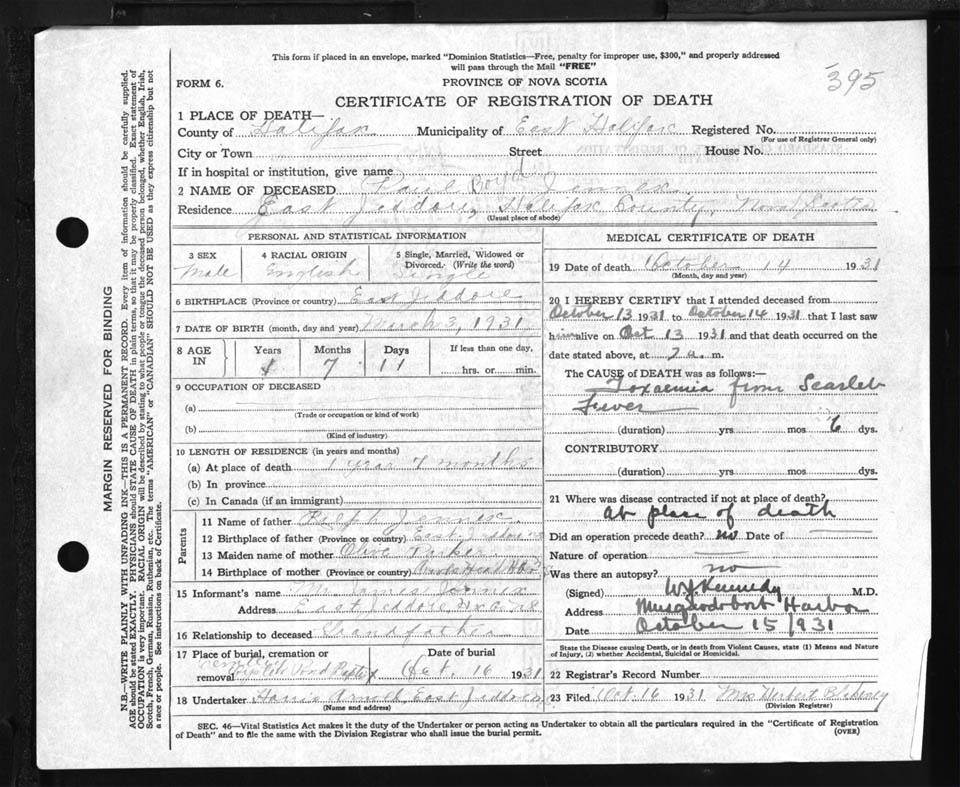 This form if placed in an envelope, marked "Dominion Statistics—Free, penalty for improper use, $300," and properly addressed
will pass through the Mail "FREE"
395
FORM 6.
PROVINCE OF NOVA SCOTIA
CERTIFICATE OF REGISTRATION OF DEATH
1 PLACE OF DEATH—
County of Halifax Municipality of East Halifax Registered No.
(For use of Registrar General only)
City or Town Street House No.
If in hospital or institution, give name
2 NAME OF DECEASED Paul Boyd Jennex
Residence East Jeddore, Halifax County, Nova Scotia
(Usual place of abode)
PERSONAL AND STATISTICAL INFORMATION
3 SEX Male
4 RACIAL ORIGIN English
5 Single, Married, Widowed or Divorced. (Write the word) Single
6 BIRTHPLACE (Province or country) East Jeddore
7 DATE OF BIRTH (month, day and year) March 3, 1931
8 AGE IN Years Months Days If less than one day,
1 7 11 hrs. or min.
9 OCCUPATION OF DECEASED
(a)
(Trade or occupation or kind of work)
(b)
(Kind of industry)
10 LENGTH OF RESIDENCE (in years and months)
(a) At place of death 1 year 7 months
(b) In province
(c) In Canada (if an immigrant)
Parents
11 Name of father Ralph Jennex
12 Birthplace of father (Province or country) East Jeddore NS
13 Maiden name of mother Olive
14 Birthplace of mother (Province or country)
15 Informant's name James Jennex
Address East Jeddore Hx Co NS
16 Relationship to deceased Grandfather
17 Place of burial, cremation or removal Date of burial
Oct. 16 1931
18 Undertaker Arnold East Jeddore
(Name and address)
MEDICAL CERTIFICATE OF DEATH
19 Date of death October 14 1931
(Month, day and year)
20 I HEREBY CERTIFY that I attended deceased from
October 13 1931 to October 14 1931 that I last saw
him alive on Oct 13 1931 and that death occurred on the
date stated above, at 7 a. m.
The CAUSE OF DEATH was as follows:—
Toxaemia from Scarlet
Fever
(duration) yrs mos 6 dys.
CONTRIBUTORY
(duration) yrs mos dys.
21 Where was disease contracted if not at place of death?
at place of death
Did an operation precede death? no Date of
Nature of operation
Was there an autopsy? no
(Signed) W. J. Kennedy M.D.
Address Musquodoboit Harbor
Date October 15 1931
State the Disease causing Death, or in death from Violent Causes, state (1) Means and Nature
of Injury, (2) whether Accidental, Suicidal or Homicidal.
22 Registrar's Record Number
23 Filed Oct. 16 1931 Mrs Herbert Blakeney
(Division Registrar)
SEC. 46—Vital Statistics Act makes it the duty of the Undertaker or person acting as Undertaker to obtain all the particulars required in the "Certificate of Registration
of Death" and to file the same with the Division Registrar who shall issue the burial permit.
(OVER)
MARGIN RESERVED FOR BINDING
N.B.—WRITE PLAINLY WITH UNFADING INK—THIS IS A PERMANENT RECORD. Every item of information should be carefully supplied.
AGE should be stated EXACTLY. PHYSICIANS should STATE CAUSE OF DEATH in plain terms, so that it may be properly classified. Exact statement of
OCCUPATION is very important. RACIAL ORIGIN will be described by stating to what people or tongue the deceased person belonged, whether English, Irish,
Scotch, French, German, Russian, Ruthenian, etc. The terms "AMERICAN" or "CANADIAN" SHOULD NOT BE USED as they express citizenship but not
a race or people. See instructions on back of Certificate.